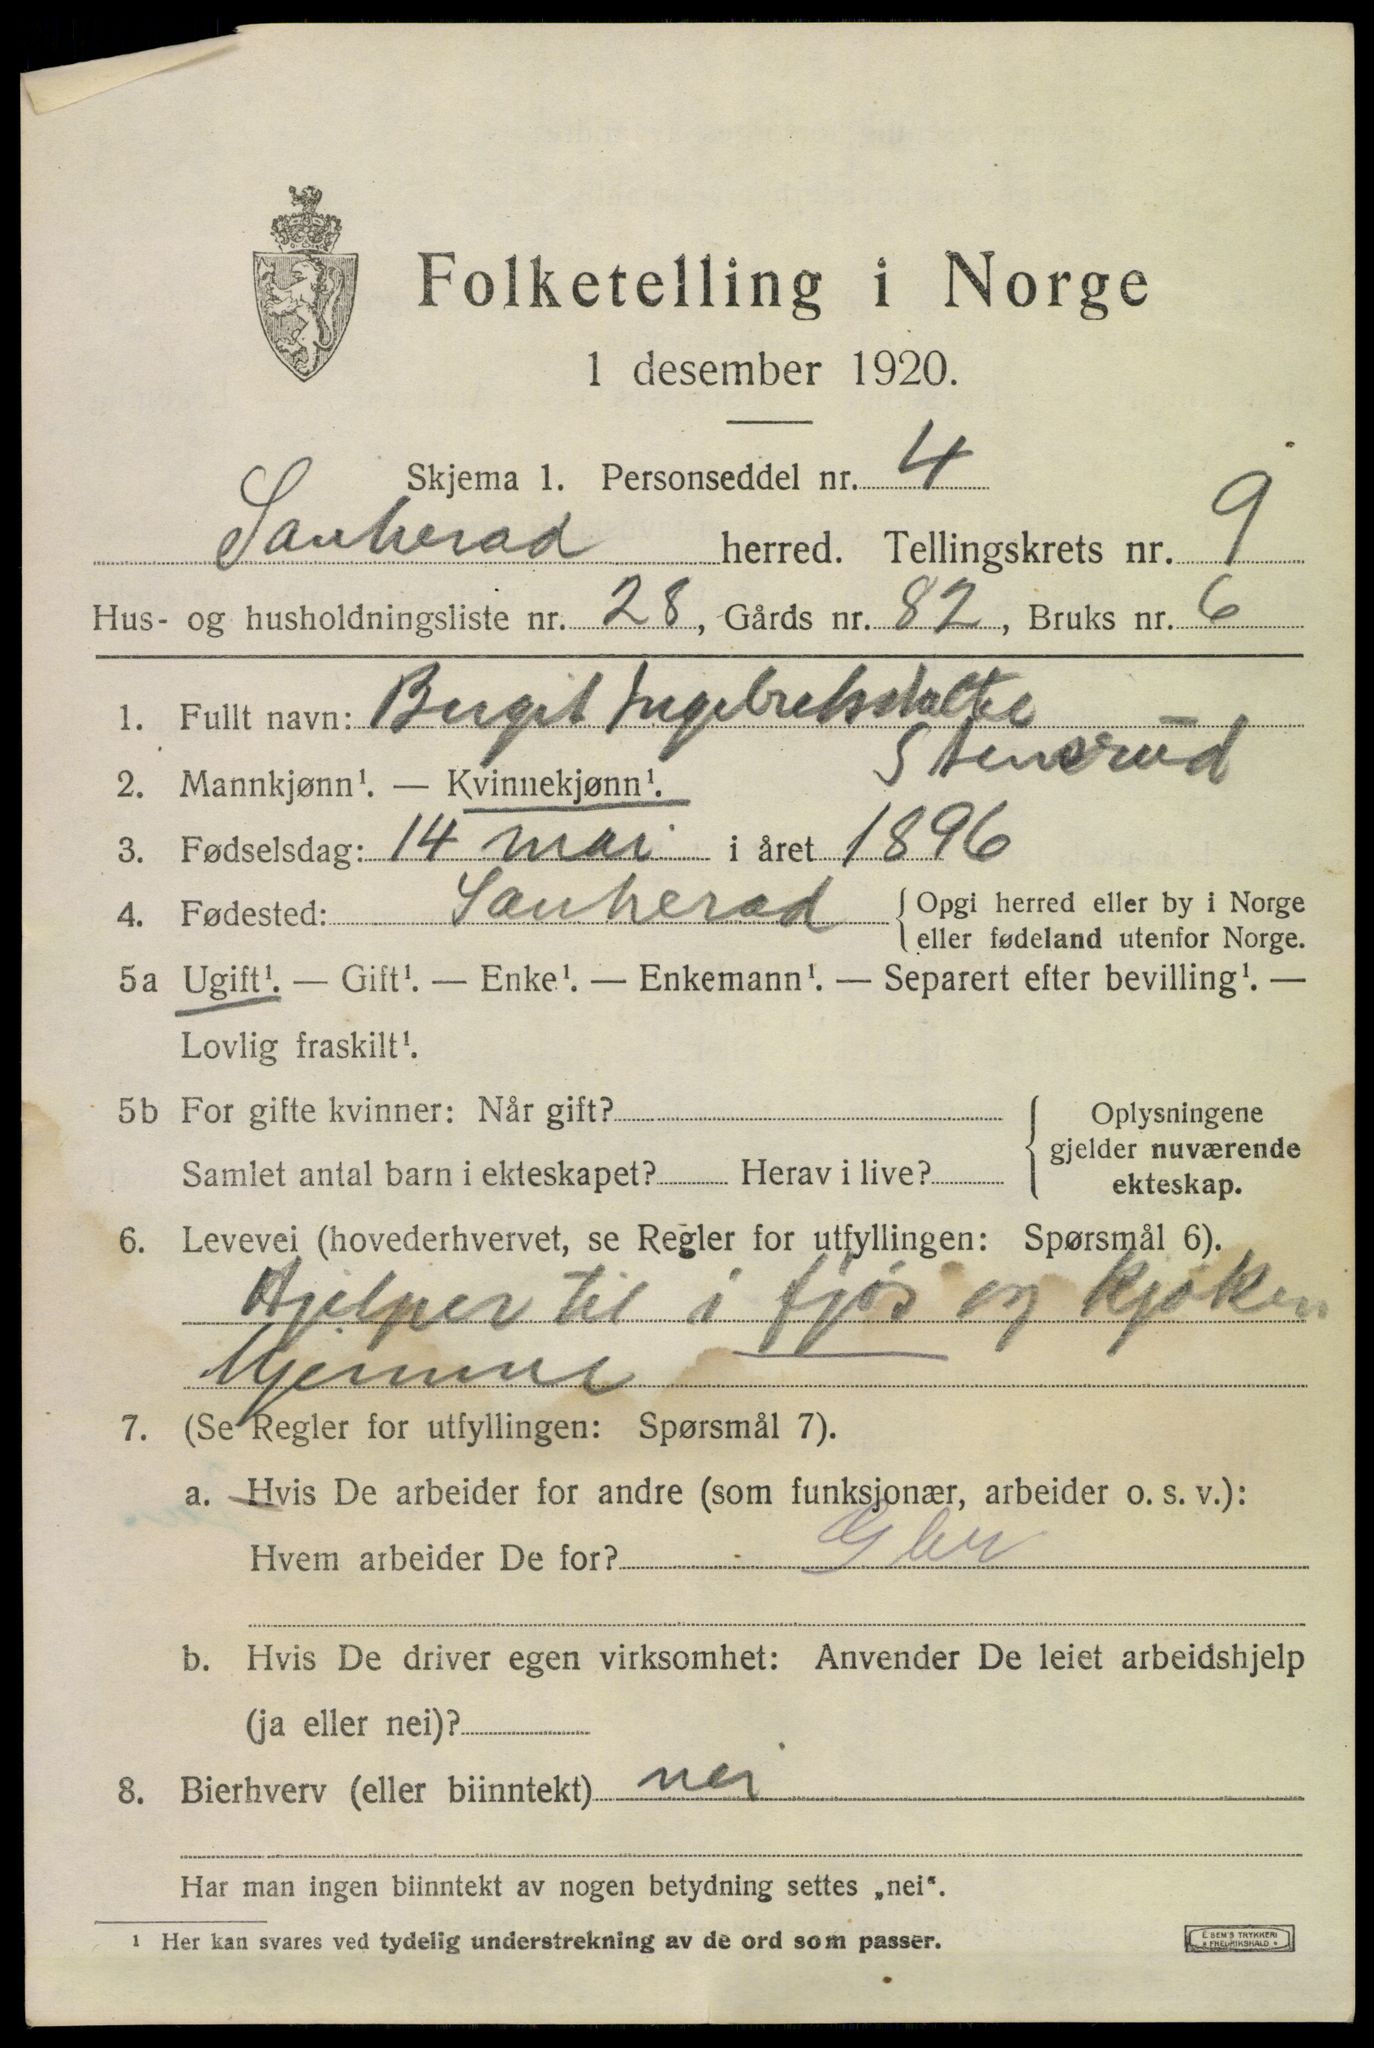 Folketelling i Norge
1 desember 1920.
Skjema 1. Personseddel nr. 4
Sauherad herred. Tellingskrets nr. 9
Hus- og husholdningsliste nr. 28, Gårds nr. 82, Bruks nr. 6
1. Fullt navn: Birgit Ingebrektsdatter
Stensrud
2. Mannkjønn¹. — Kvinnekjønn¹.
3. Fødselsdag: 14 mai i året 1896
4. Fødested: Sauherad { Opgi herred eller by i Norge
eller fødeland utenfor Norge.
5a Ugift¹. — Gift¹. — Enke¹. — Enkemann¹. — Separert efter bevilling¹. —
Lovlig fraskilt¹.
5b For gifte kvinner: Når gift?
Samlet antal barn i ekteskapet? Herav i live?
{ Oplysningene
gjelder nuværende
ekteskap.
6. Levevei (hovederhvervet, se Regler for utfyllingen: Spørsmål 6).
Hjelper til i fjøs og kjøken
hjemme
7. (Se Regler for utfyllingen: Spørsmål 7).
a. Hvis De arbeider for andre (som funksjonær, arbeider o. s. v.):
Hvem arbeider De for?
b. Hvis De driver egen virksomhet: Anvender De leiet arbeidshjelp
(ja eller nei)?
8. Bierhverv (eller biinntekt) nei
Har man ingen biinntekt av nogen betydning settes „nei“.
¹ Her kan svares ved tydelig understrekning av de ord som passer.
E. SEM'S TRYKKERI
FREDRIKSHALD